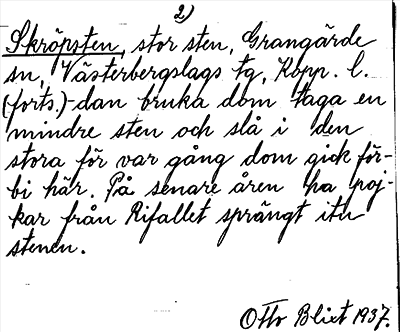 2)
Skröpsten, stor sten, Grangärde
sn, Västerbergslags tg, Kopp. l.
(forts.)-dan bruka dom taga en
mindre sten och slå i den
stora för var gång dom gick för-
bi här. På senare åren ha poj-
kar från Rifallet sprängt itu
stenen.
Otto Blixt 1937.